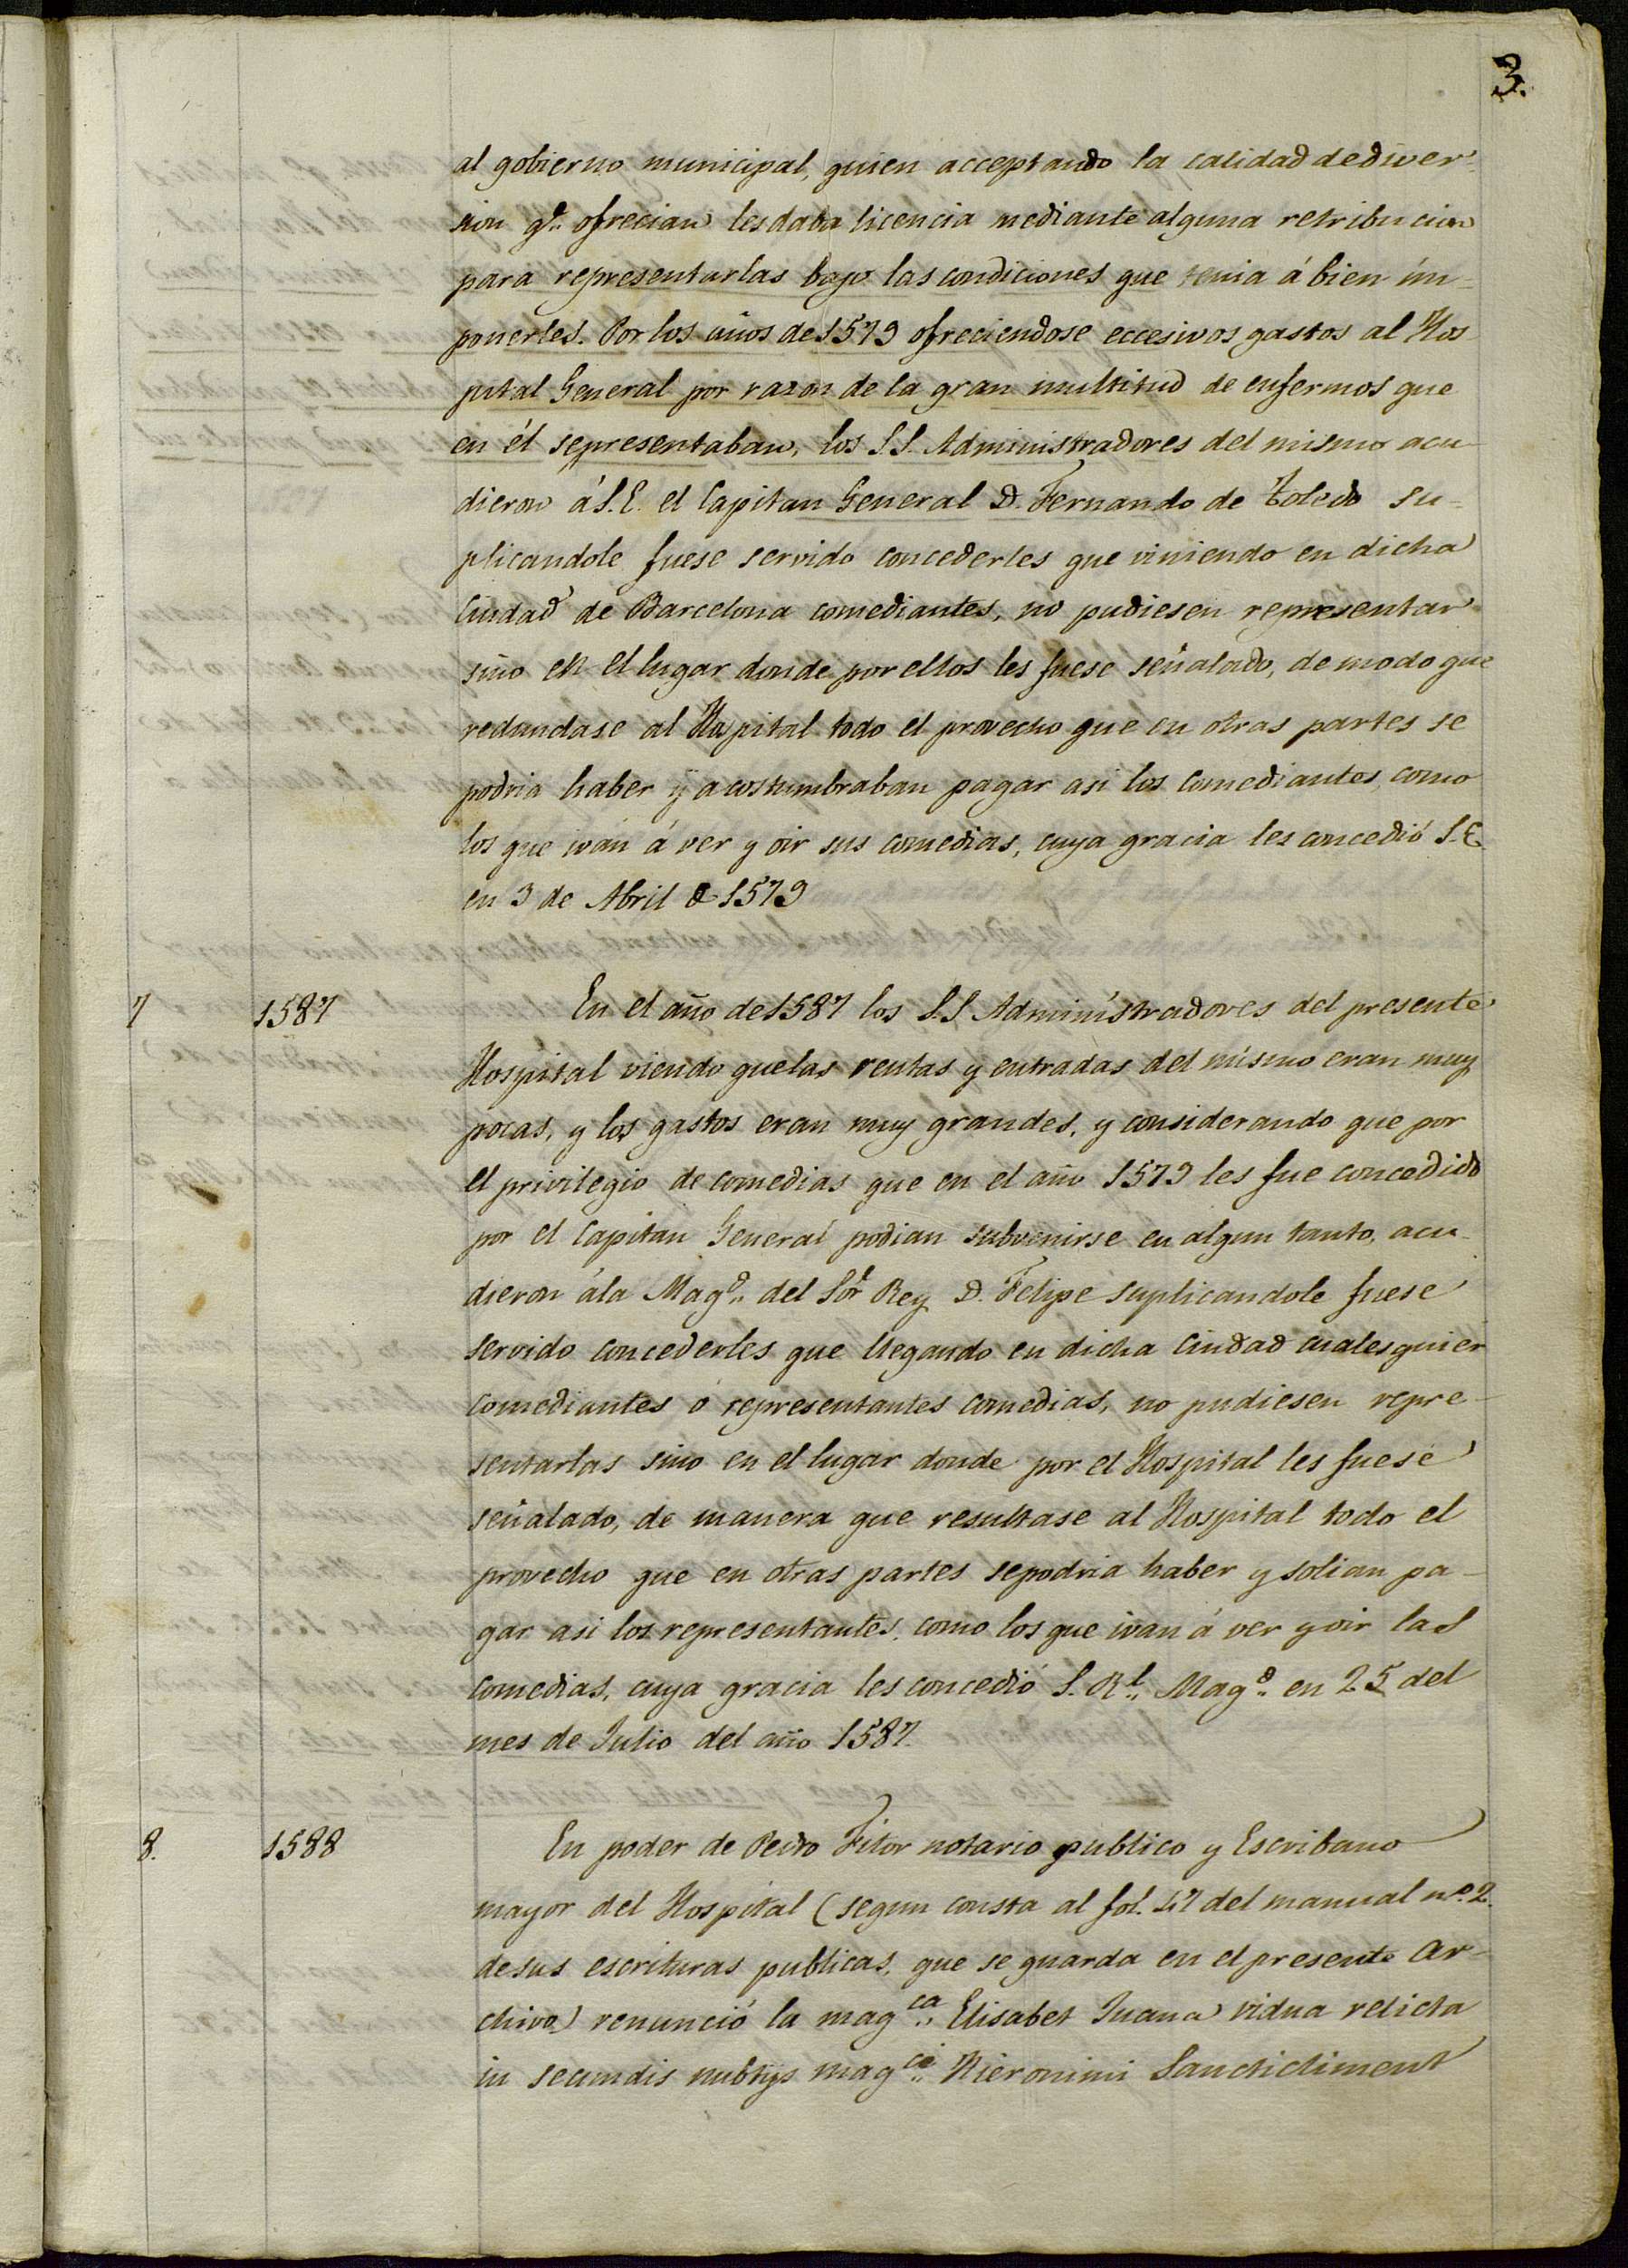 3.
al gobierno municipal, quien acceptando la calidad de diver-
sion qe. ofrecian les daba licencia mediante alguna retribucion
para representarlas bajo las condiciones que tenia á bien im-
ponerles. Por los años de 1579 ofreciendose eccesivos gastos al Hos
pital General por razon de la gran multitud de enfermos que
en él se presentaban, los S.S. Administradores del mismo acu-
dieron á S.E. el Capitan General D. Fernando de Toledo su-
plicandole fuese servido concederles que viniendo en dicha
Ciudad de Barcelona comediantes, no pudiesen representar
sino en el lugar donde por ellos les fuese señalado, de modo que
redundase al Hospital todo el provecho que en otras partes se
podria haber y acostumbraban pagar asi los comediantes, como
los que ivan á ver y oir sus comedias, cuya gracia les concedió S.E.
en 3 de Abril de 1579
7 1587 En el año de 1587 los S.S. Administradores del presente
Hospital viendo que las rentas y entradas del mismo eran muy
pocas, y los gastos eran muy grandes, y considerando que por
el privilegio de comedias que en el año 1579 les fue concedido
por el Capitan General podian subvenirse en algun tanto, acu-
dieron á la Magd. del Sor. Rey D. Felipe suplicandole fuese
servido concederles que llegando en dicha Ciudad cualesquier
comediantes ó representantes comedias, no pudiesen repre-
sentarlas sino en el lugar donde por el Hospital les fuese
señalado, de manera que resultase al Hospital todo el
provecho que en otras partes se podria haber y solian pa-
gar asi los representantes, como los que ivan á ver y oir las
comedias, cuya gracia les concedió S. Rl. Magd. en 25 del
mes de Julio del año 1587.
8. 1588 En poder de Pedro Fitor notario publico y Escribano
mayor del Hospital (segun consta al fol. 47 del manual no. 2.
de sus escrituras publicas, que se guarda en el presente Ar-
chivo) renunció la magca. Elisabet Juana vidua relicta
in secundis nubtijs magci. Hieronimi Sanctictiment